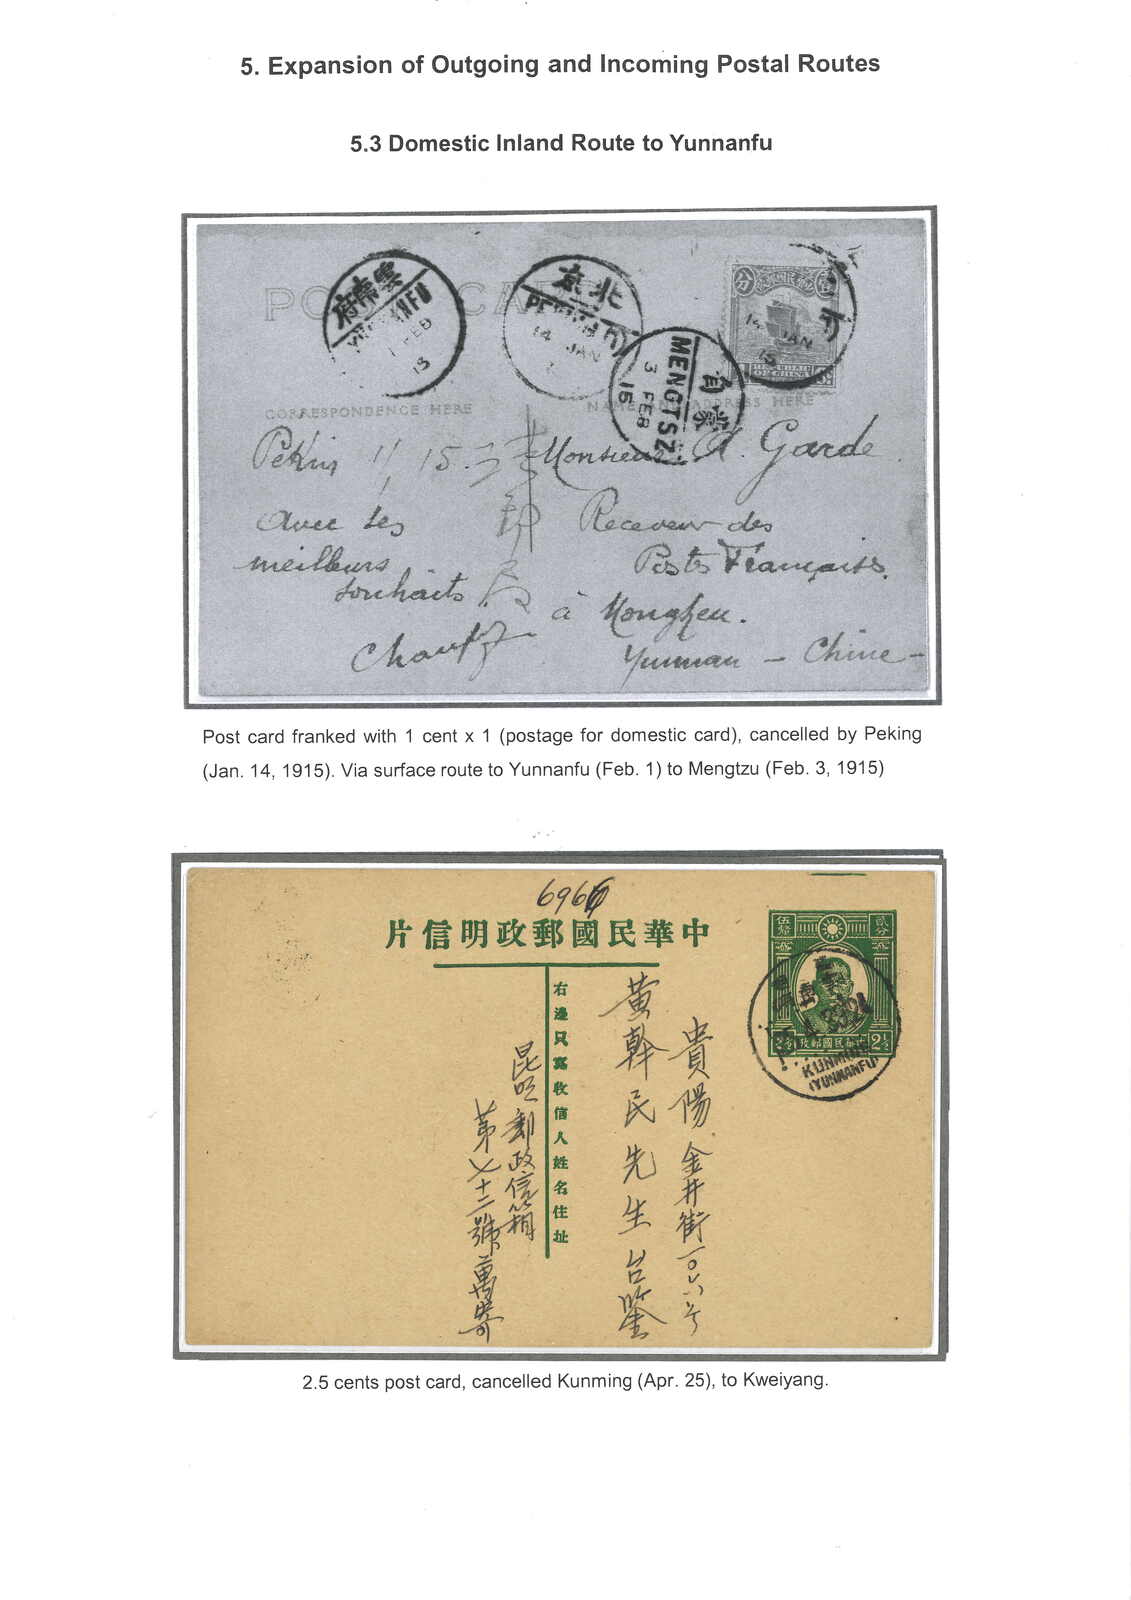 5. Expansion of Outgoing and Incoming Postal Routes
5.3 Domestic Inland Route to Yunnanfu
雲南府
YUNNANFU
FEB
北京
PEKING
14 JAN
MENGTSZ
3 FEB
15
蒙自
14 JAN
15
REPUBLIC
OF CHINA
POST CARD
CORRESPONDENCE HERE
NAME AND ADDRESS HERE
Pekin 1/1 15.
avec les
meilleurs
souhaits
Monsieur A. Garde
Receveur des
Postes Françaises
à Mongtseu.
Yunnan - Chine -
Post card franked with 1 cent x 1 (postage for domestic card), cancelled by Peking
(Jan. 14, 1915). Via surface route to Yunnanfu (Feb. 1) to Mengtzu (Feb. 3, 1915)
中華民國郵政明信片
伍釐
貳分
中華民國郵政
2½
KUNMING
(YUNNANFU)
貴陽金井街一〇六号
黃幹民先生台鑒
右邊只寫收信人姓名住址
昆明郵政信箱
第七十二號萬寄
2.5 cents post card, cancelled Kunming (Apr. 25), to Kweiyang.